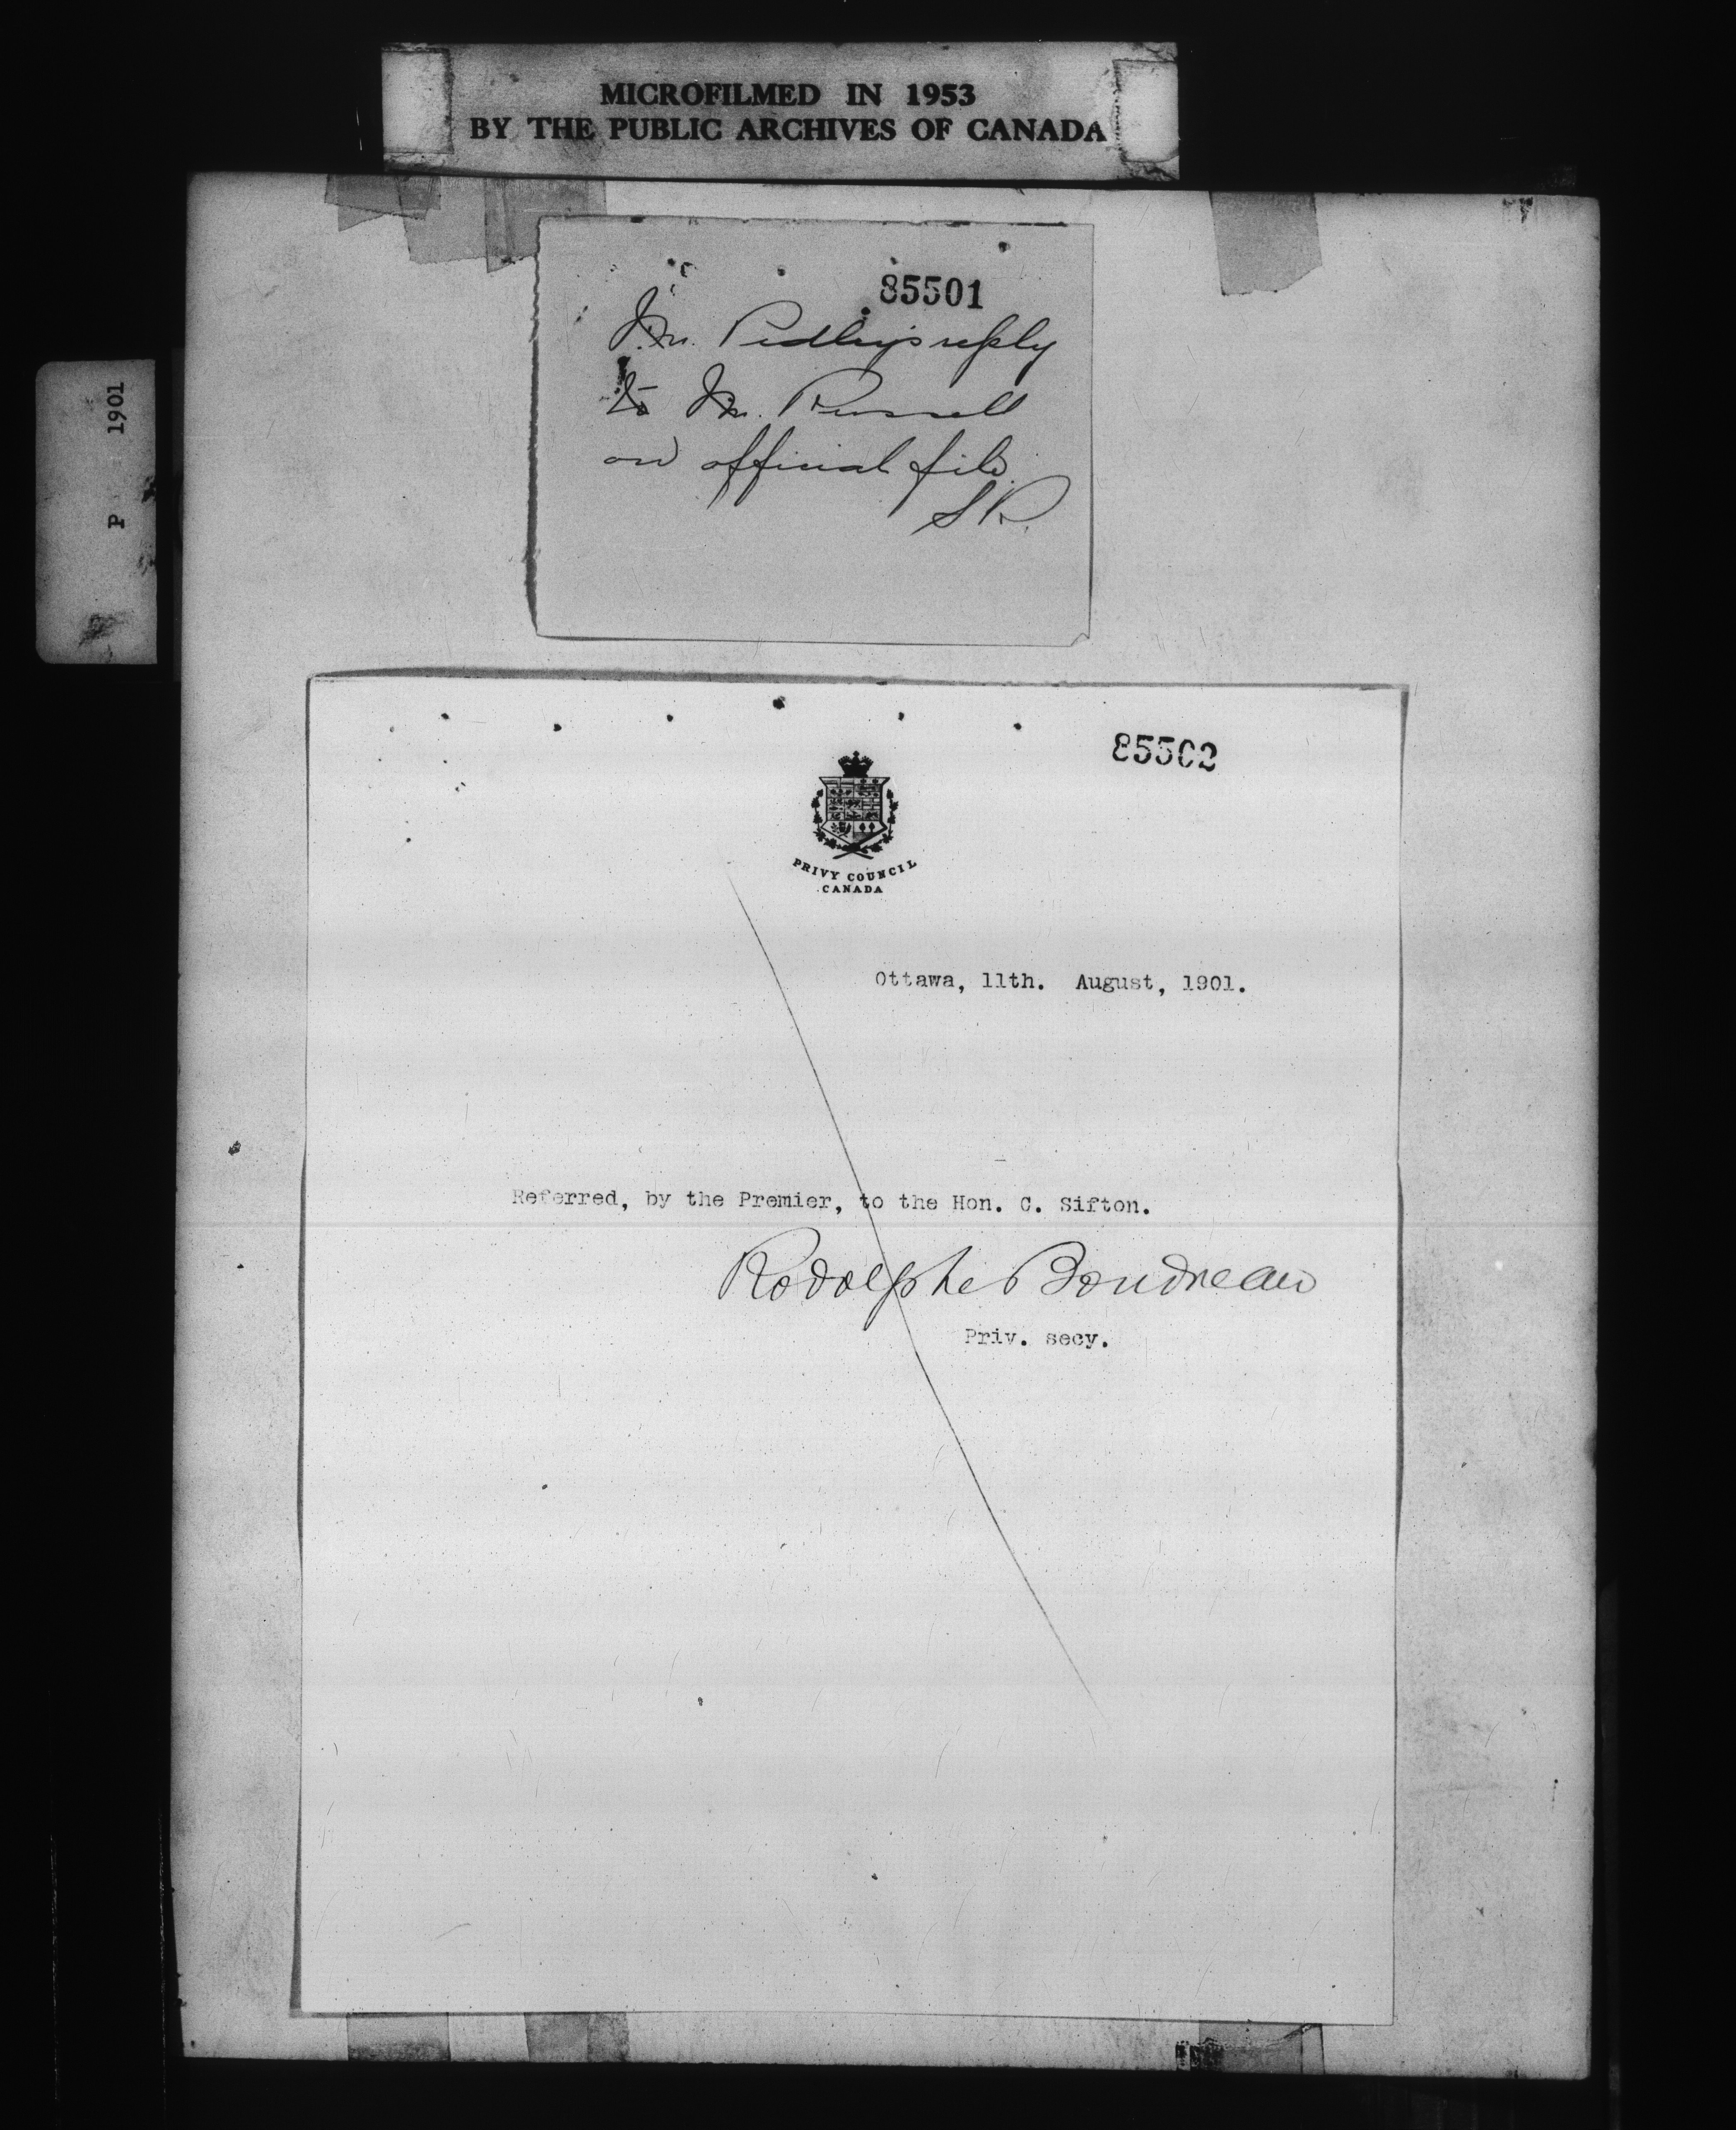 MICROFILMED IN 1953
BY THE PUBLIC ARCHIVES OF CANADA
P 1901
85501
Mr. Pedley's reply
to Mr. Russell
on official file.
S R.
85502
PRIVY COUNCIL
CANADA
Ottawa, 11th. August, 1901.
Referred, by the Premier, to the Hon. C. Sifton.
Rodolphe Boudreau
Priv. secy.